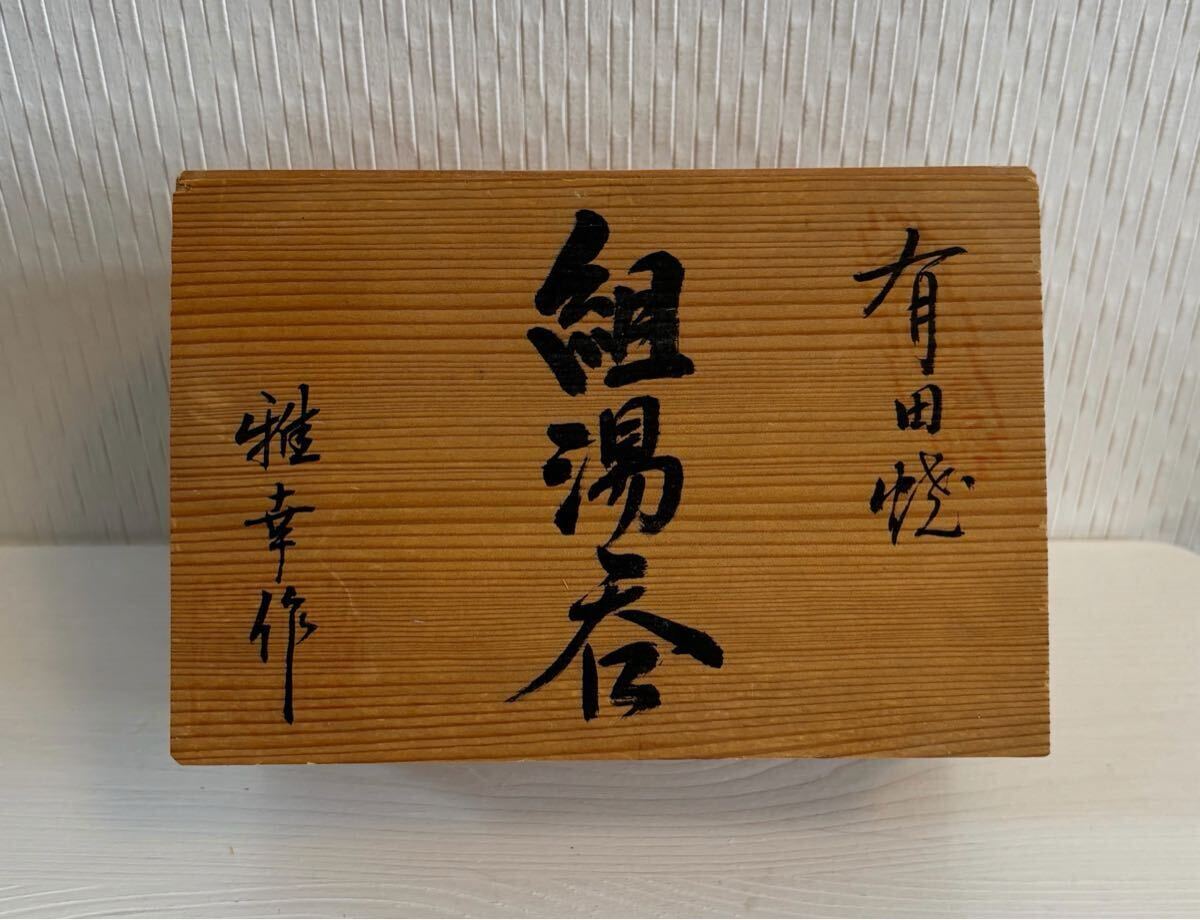 有田焼
組湯呑
雅幸作